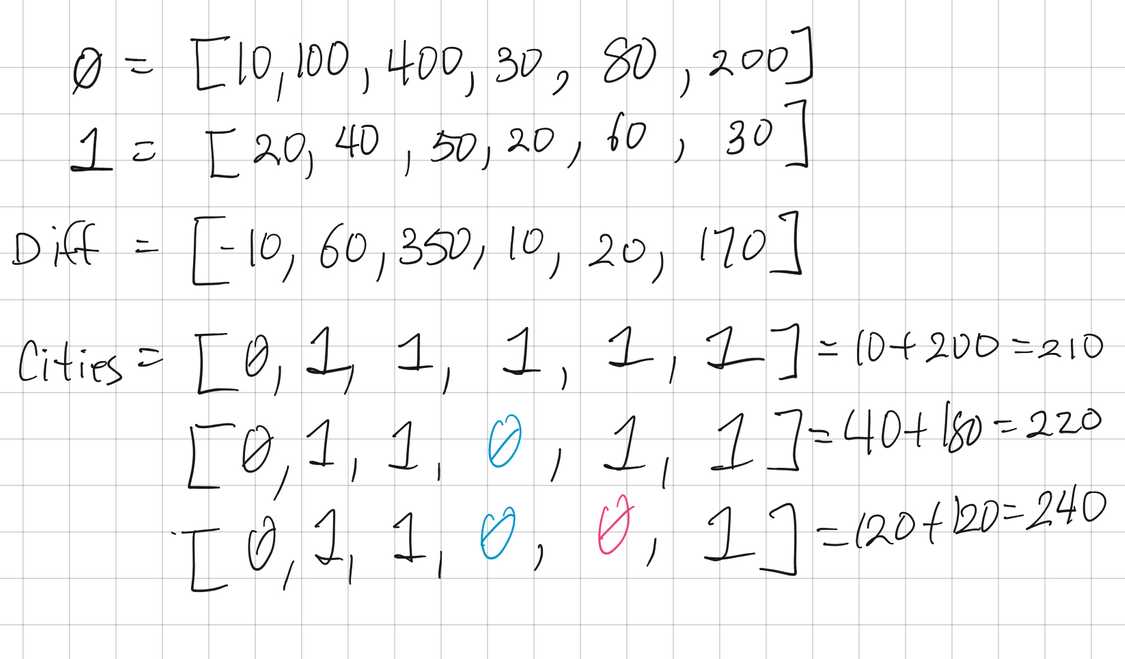 0 = [10, 100, 400, 30, 80, 200]
1 = [20, 40, 50, 20, 60, 30]
Diff = [-10, 60, 350, 10, 20, 170]
Cities = [0, 1, 1, 1, 1, 1] = 10 + 200 = 210
[0, 1, 1, 0, 1, 1] = 40 + 180 = 220
[0, 1, 1, 0, 0, 1] = 120 + 120 = 240